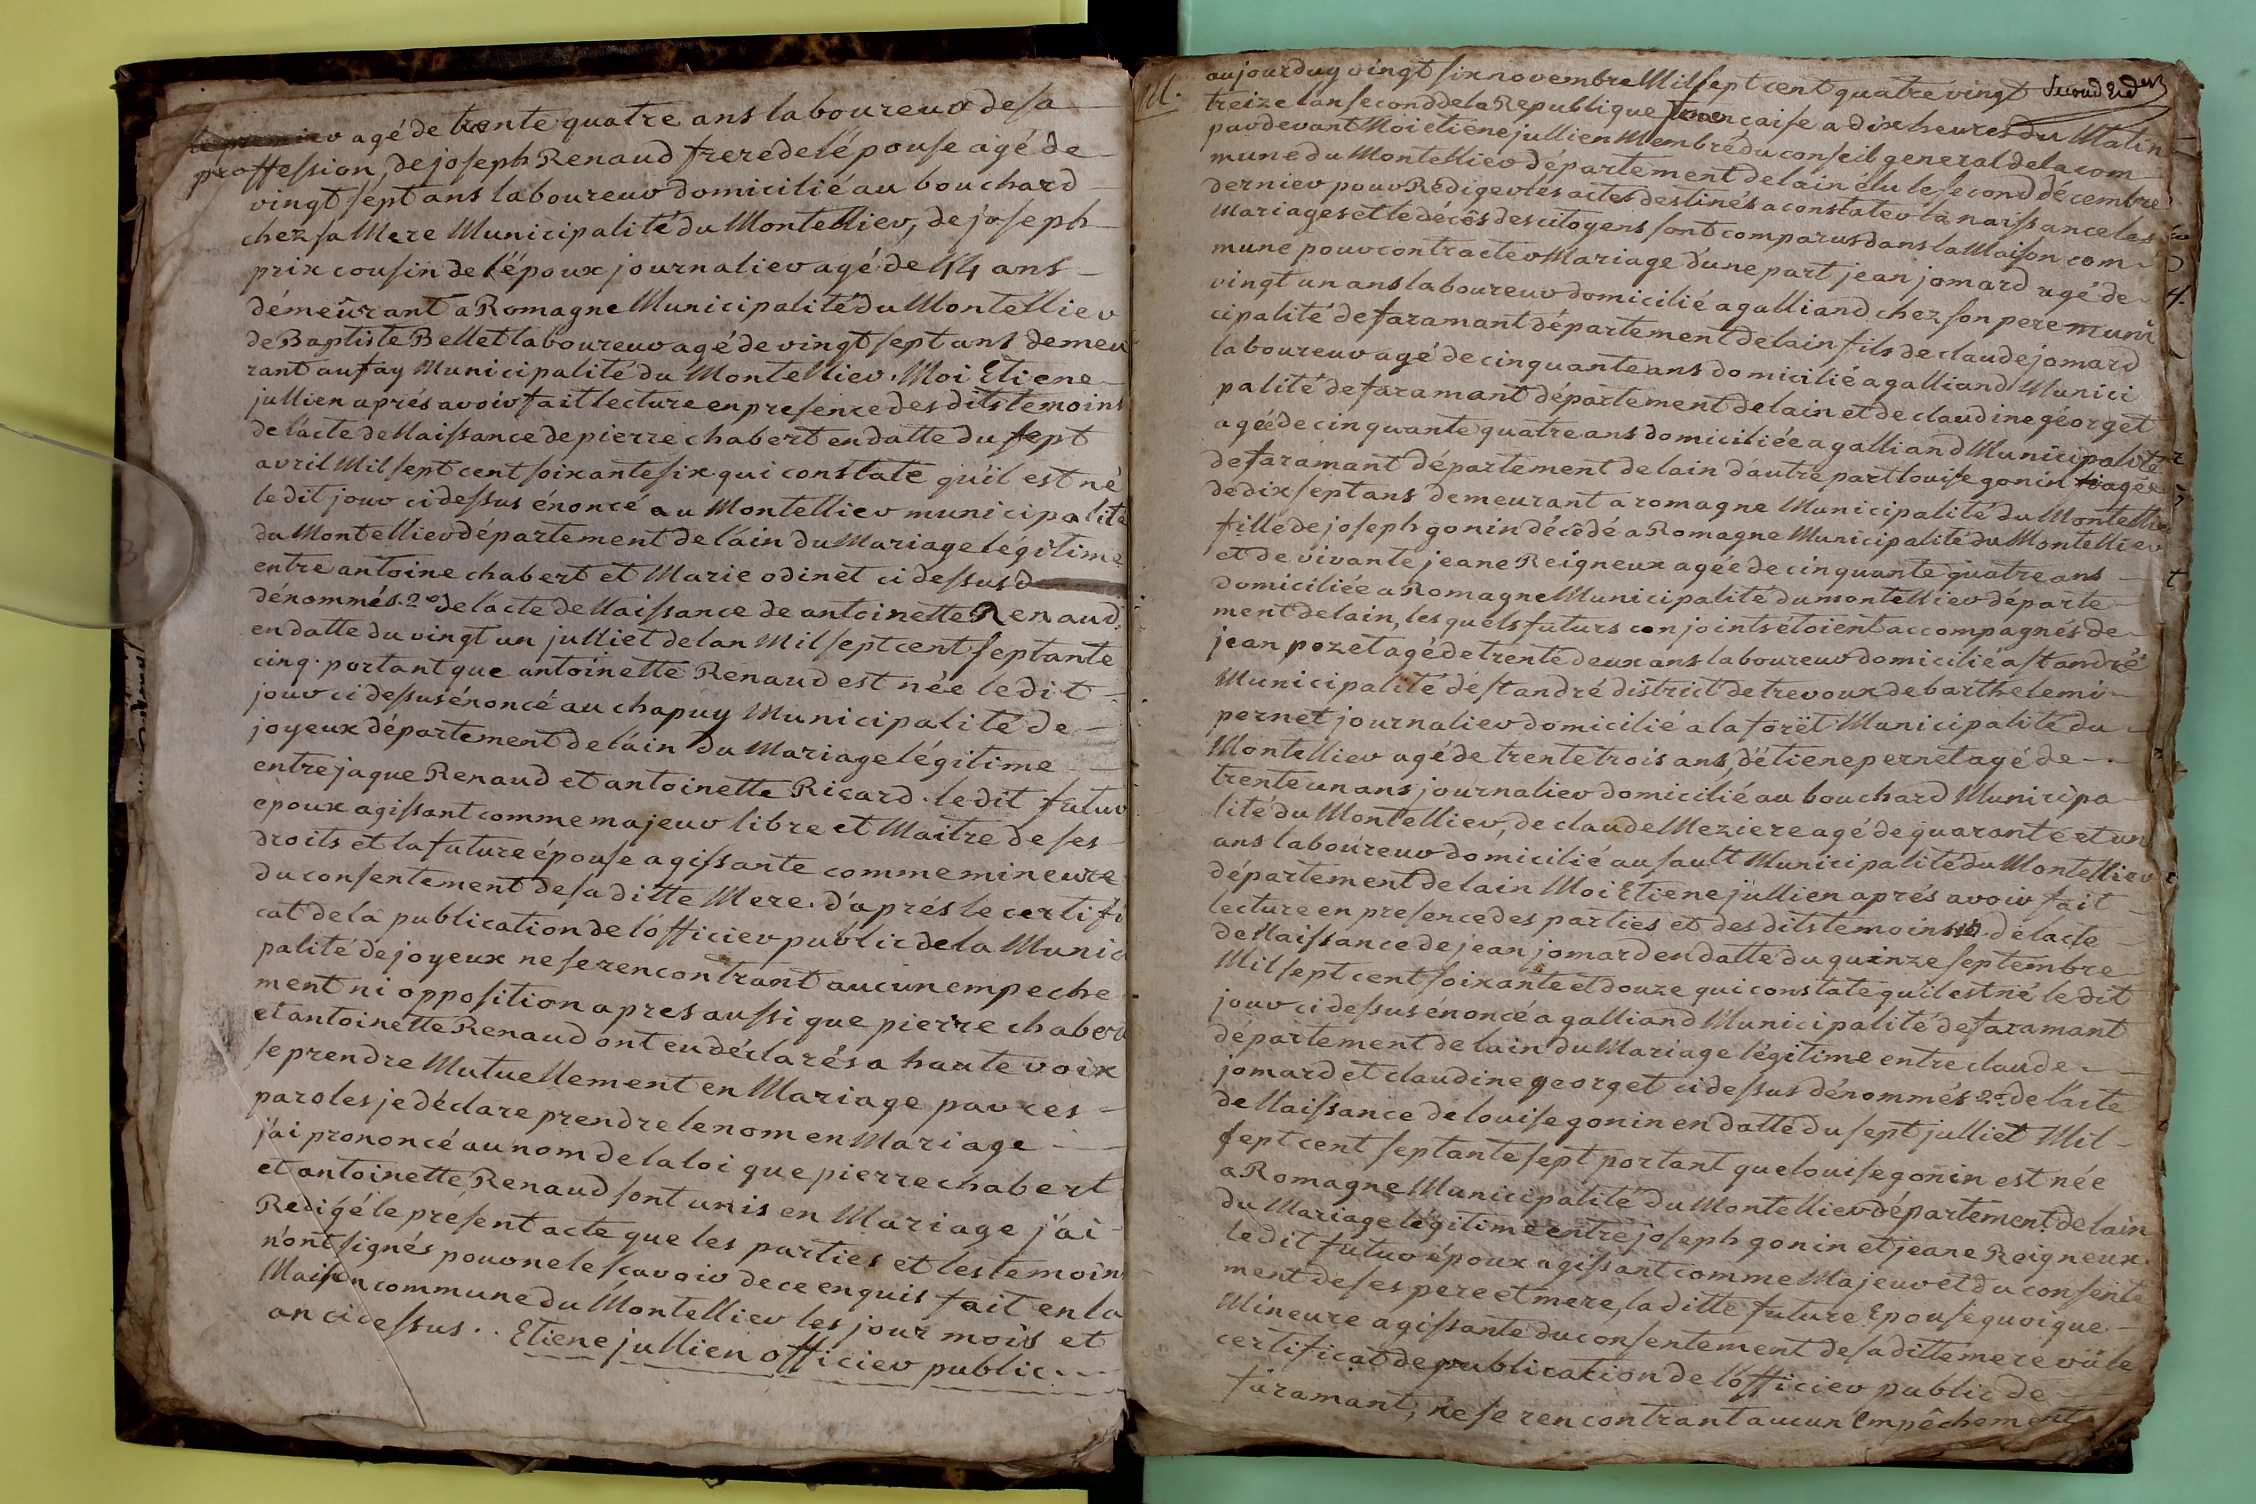 agé de trente quatre ans laboureur de sa
proffession, de joseph Renaud frere de lépouse agé de
vingt sept ans laboureur domicilié au bouchard
chez sa Mere Municipalité du Montellier, de joseph
prix cousin de l'époux journalier agé de 44 ans
démeûrant a Romagne Municipalité du Montellier
de Baptiste Bellet laboureur agé de vingt sept ans demeu
rant au fay Municipalité du Montellier. Moi Etiene
jullien aprés avoir fait lecture en presence des dits temoins
de lacte de Naissance de pierre chabert en datte du sept
avril Mil sept cent soixante six qui constate qu'il est né
le dit jour ci dessus énoncé au Montellier municipalité
du Montellier département de lain du Mariage légitime
entre antoine chabert et Marie odinet ci dessus d
dénommés. 2º de lacte de Naissance de antoinette Renaud
en datte du vingt un julliet de lan Mil sept cent septante
cinq. portant que antoinette Renaud est née le dit
jour ci dessus énoncé au chapuy Municipalité de
joyeux département de láin du Mariage légitime
entre jaque Renaud et antoinette Ricard. le dit futur
epoux agissant comme majeur libre et Maitre de ses
droits et la future épouse agissante comme mineure
du consentement de sa ditte Mere. d'aprés le certifi
cat de la publication de l'officier public de la Munici
palité de joyeux ne se rencontrant aucun empeche
ment ni opposition apres aussi que pierre chabert
et antoinette Renaud ont eu déclarés a haute voix
se prendre Mutuellement en Mariage par ces
paroles je déclare prendre le nom en Mariage
j'ai prononcé au nom de la loi que pierre chabert
et antoinette Renaud sont unis en Mariage j'ai
Redigé le present acte que les parties et les temoins
n'ont signés pour ne le scavoir de ce enquis fait en la
Maison commune du Montellier les jour mois et
an ci dessus.. Etiene jullien officier public
M.
aujourduy vingt six novembre Mil sept cent quatre vingt
treize lan second de la Republique francaise a dix heures du Matin
par devant Moi etiene jullien Membre du conseil general de la com
mune du Montellier département de lain élu le second décembre
dernier pour Rédiger les actes destinés a constater la naissance les
Mariages et le décès des citoyens sont comparus dans la Maison com
mune pour contracter Mariage d'une part jean jomard agé de
vingt un ans laboureur domicilié a galliand chez son pere muni
cipalité de faramant département de lain fils de claude jomard
laboureur agé de cinquante ans domicilié a galliand Munici
palité de faramant département de lain et de claudine géorget
agée de cinquante quatre ans domiciliée a galliand Municipalité
de faramant département de lain d'autre part louise gonin agée
de dix sept ans demeurant a romagne Municipalité du Montellier
fille de joseph gonin décédé a Romagne Municipalité du Montellier
et de vivante jeane Reigneux agée de cinquante quatre ans
domiciliée a Romagne Municipalité du montellier départe
ment de lain, les quels futurs conjoints étoient accompagnés de
jean pozet agé de trente deux ans laboureur domicilié a st andré
Municipalité de st andré district de trevoux de barthelemi
pernet journalier domicilié a la forêt Municipalité du
Montellier agé de trente trois ans, d'étiene pernet agé de
trente un ans journalier domicilié au bouchard Municipa
lité du Montellier, de claude Meziere agé de quarante et un
ans laboureur domicilié au sault Municipalité du Montellier
département de lain Moi Etiene jullien aprés avoir fait
lecture en presence des parties et des dits temoins 1º de lacte
de Naissance de jean jomard en datte du quinze septembre
Mil sept cent soixante et douze qui constate qu'il est né le dit
jour ci dessus énoncé a galliand Municipalité de faramant
département de lain du Mariage légitime entre claude
jomard et claudine georget ci dessus dénommés 2º de lacte
de Naissance de louise gonin en datte du sept julliet Mil
sept cent septante sept portant que louise gonin est née
a Romagne Municipalité du Montellier département de lain
du Mariage légitime entre joseph gonin et jeane Reigneux.
le dit futur époux agissant comme Majeur et du consente
ment de ses pere et mere, la ditte future Epouse quoique
Mineure agissante du consentement de sa ditte mere vû le
certificat de publication de l'officier public de
faramant, ne se rencontrant aucun empêchement